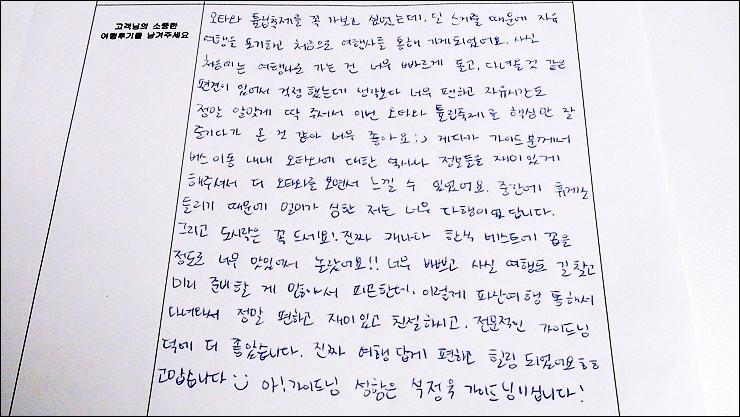 고객님의 소중한
여행후기를 남겨주세요
오타와 튤립축제를 꼭 가보고 싶었는데, 일 스케줄 때문에 자유
여행을 포기하고 처음으로 여행사를 통해 가게되었어요. 사실
처음에는 여행사로 가는 건 너무 빠르게 돌고, 다녀올것 같은
편견이 있어서 걱정했는데 생각보다 너무 편하고 자유시간도
정말 알맞게 딱 주셔서 이번 오타와 튤립축제를 핵심만 잘
즐기다가 온 것 같아 너무 좋아요 :) 게다가 가이드분께서
버스 이동 내내 오타와에 대한 역사나 정보들을 재미있게
해주셔서 더 오타와를 보면서 느낄 수 있었어요. 중간에 휴게소
들리기 때문에 멀미가 심한 저는 너무 다행이었답니다.
그리고 도시락은 꼭 드세요! 진짜 캐나다 한식 베스트에 꼽을
정도로 너무 맛있어서 놀랐어요!! 너무 바쁘고 사실 여행도 길찾고
미리 준비할 게 많아서 피곤한데, 이렇게 파란여행 통해서
다녀와서 정말 편하고 재미있고 친절하시고, 전문적인 가이드님
덕에 더 좋았습니다. 진짜 여행답게 편하고 힐링 되었어요 ㅎㅎ
고맙습니다 :) 아! 가이드님 성함은 석정욱 가이드님이십니다!